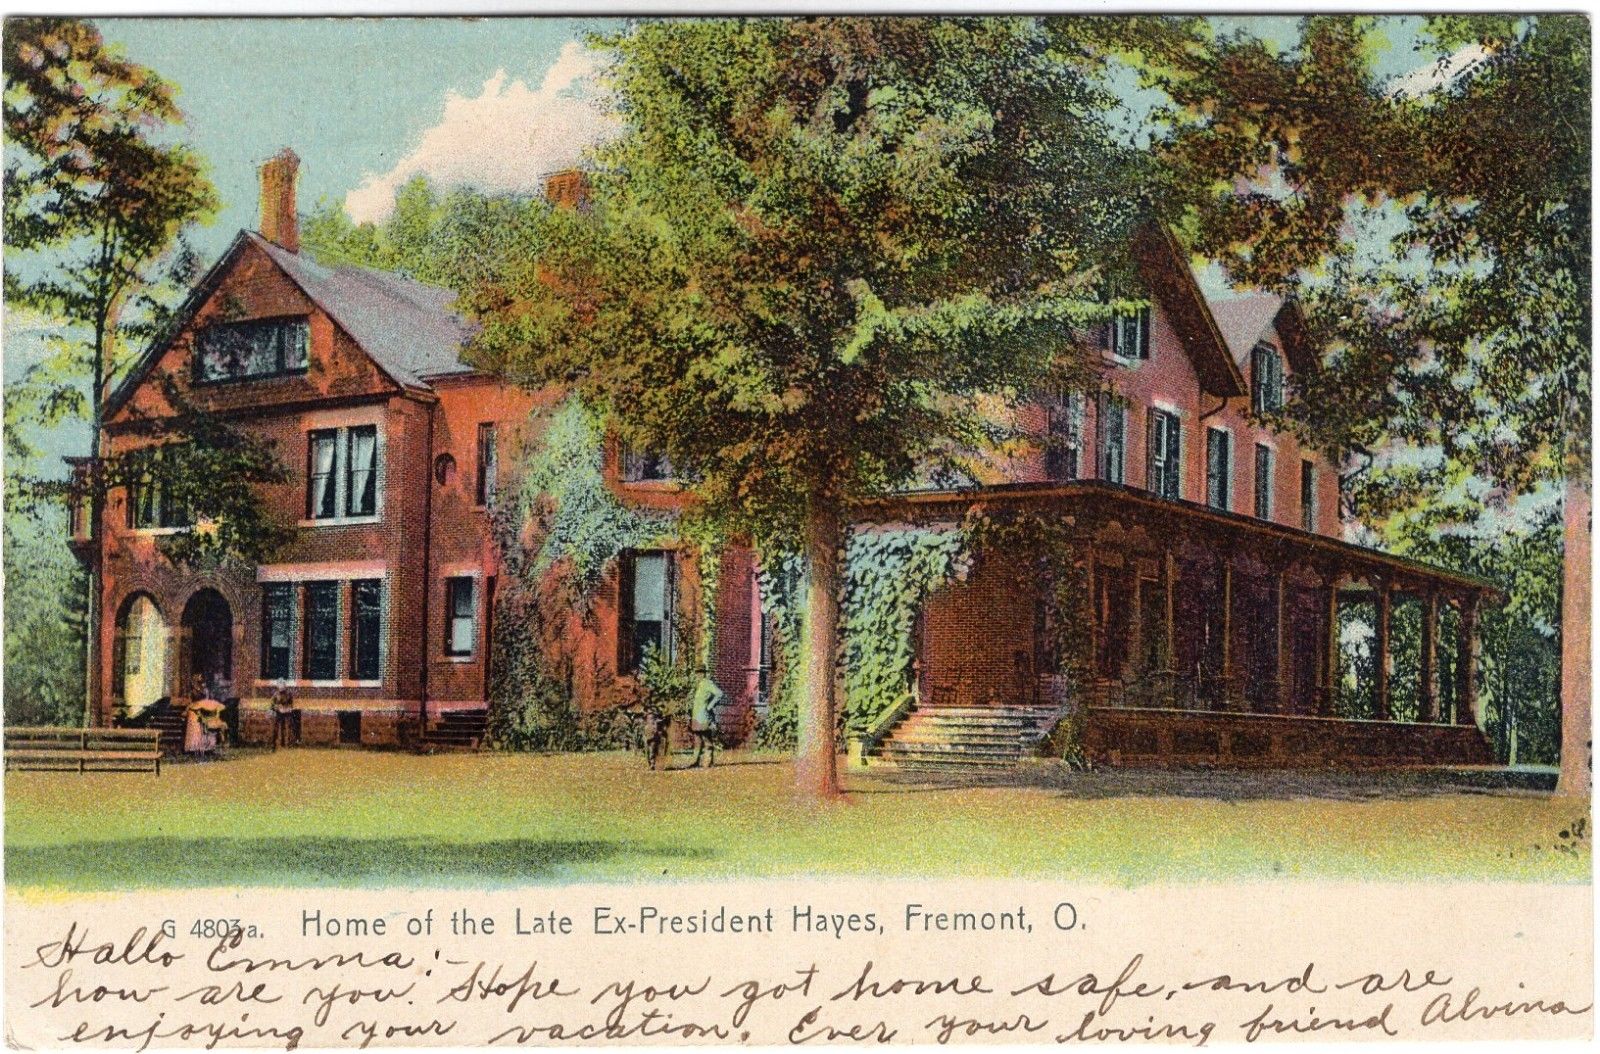 G 4803a. Home of the Late Ex-President Hayes, Fremont, O.
Hallo Emma:-
how are you. Hope you got home safe, and are
enjoying your vacation. Ever your loving friend Alvina